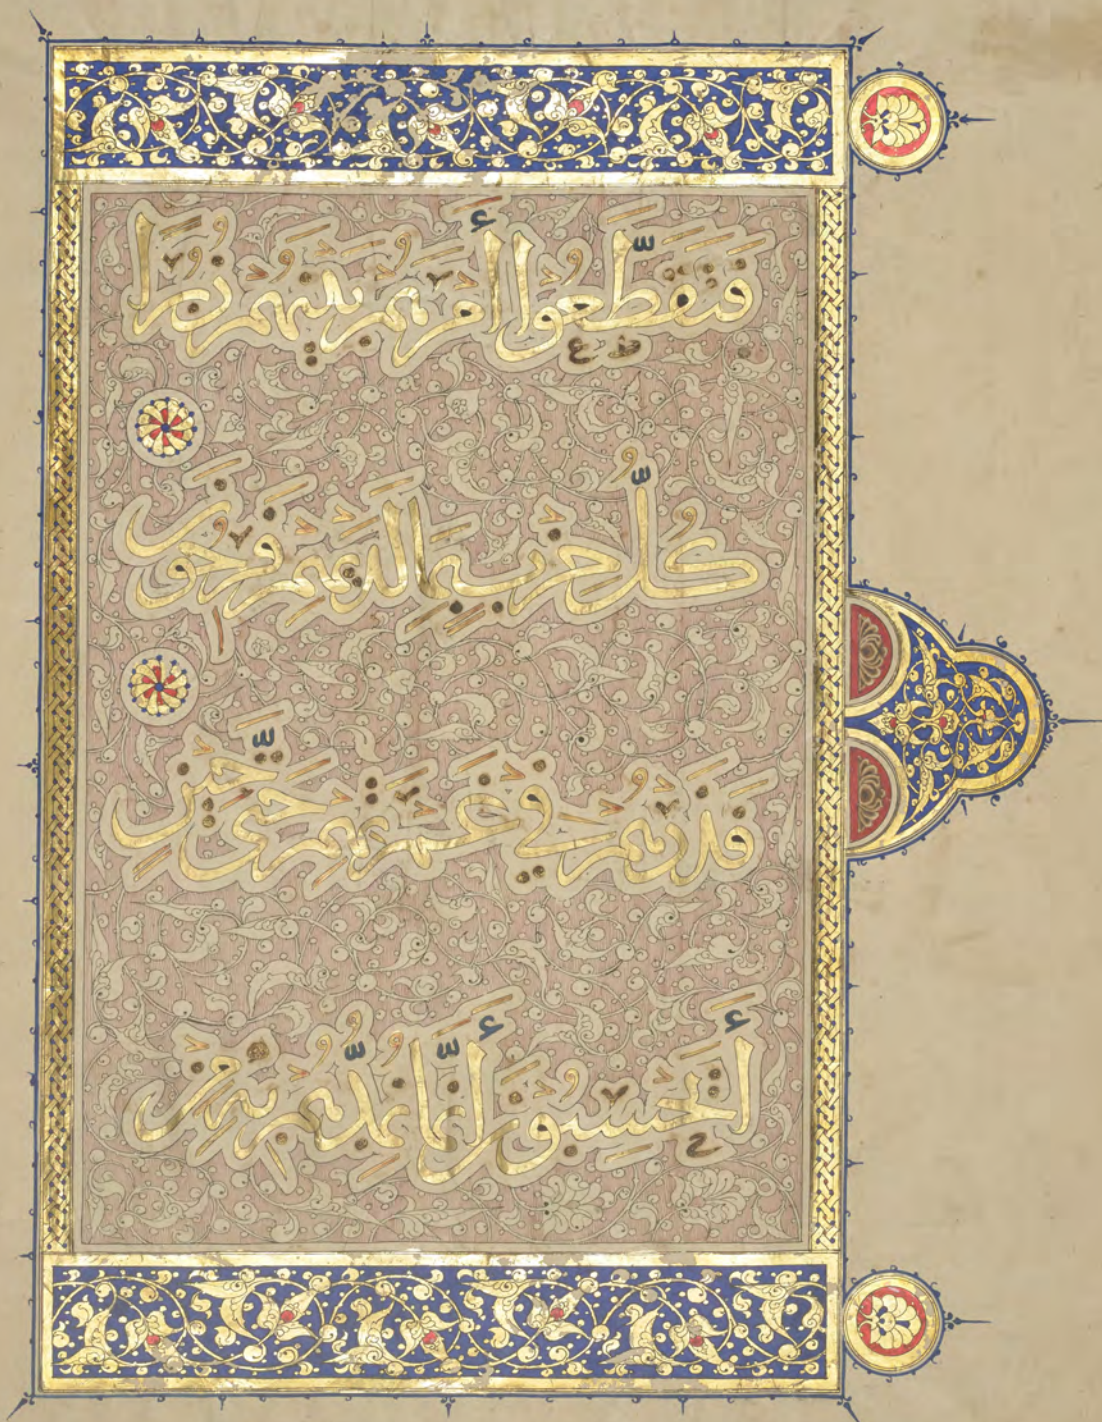 فَتَقَطَّعُوا أَمْرَهُمْ بَيْنَهُمْ زُبُرًا
كُلُّ حِزْبٍ بِمَا لَدَيْهِمْ فَرِحُونَ
فَذَرْهُمْ فِي غَمْرَتِهِمْ حَتَّى حِينٍ
أَيَحْسِبُونَ أَنَّمَا نُمِدُّهُمْ بِهِ مِنْ